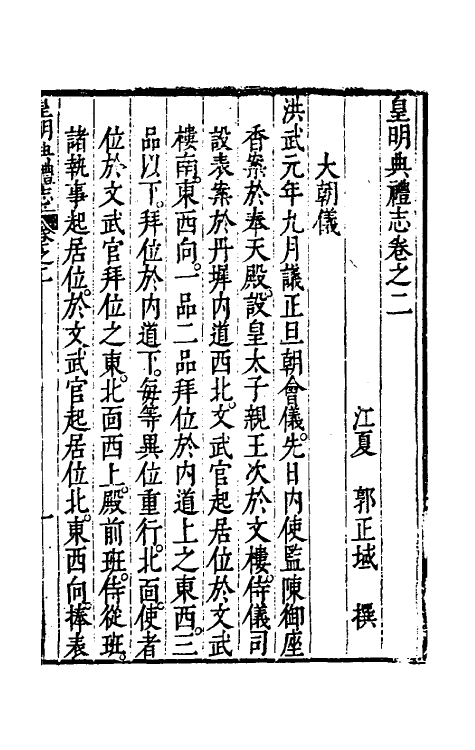 皇明典禮志卷之二
江夏 郭正域 撰
大朝儀
洪武元年九月議正旦朝會儀。先日內使監陳御座
香案於奉天殿。設皇太子親王次於文樓。侍儀司
設表案於丹墀內道西北。文武官起居位於文武
樓南。東西向。一品二品拜位於內道上之東西。三
品以下。拜位於內道下。每等異位重行。北面。使者
位於文武官拜位之東。北面西上。殿前班。侍從班。
諸執事起居位。於文武官起居位北。東西向。捧表
皇明典禮志 卷之二
一